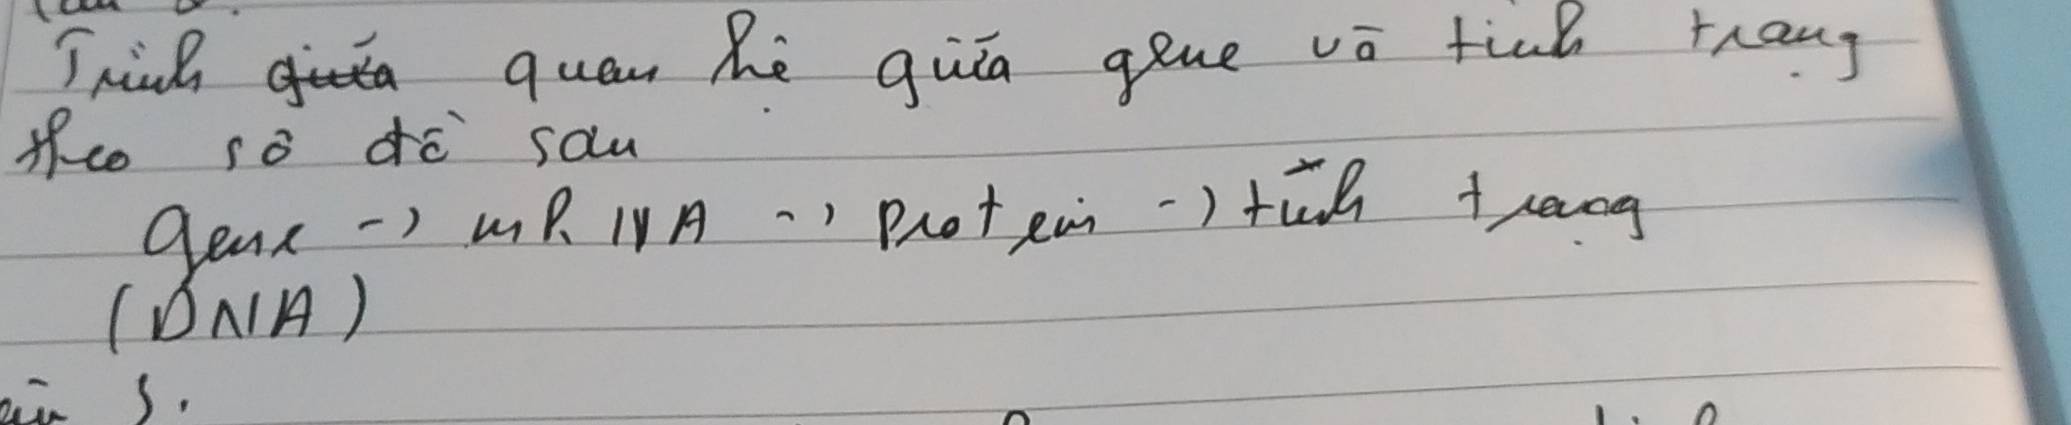 Trình quan hệ giữa gene và tính trạng
theo sơ đồ sau
gene -> mRNA -> Protein -> tính trạng
(DNA)
5.